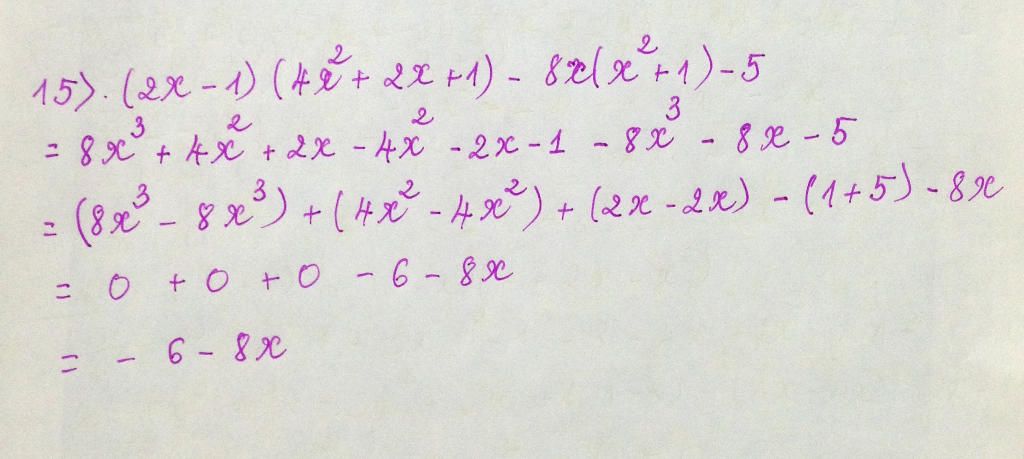 15). (2x - 1) (4x² + 2x + 1) - 8x(x² + 1) - 5
= 8x³ + 4x² + 2x - 4x² - 2x - 1 - 8x³ - 8x - 5
= (8x³ - 8x³) + (4x² - 4x²) + (2x - 2x) - (1 + 5) - 8x
= 0 + 0 + 0 - 6 - 8x
= - 6 - 8x